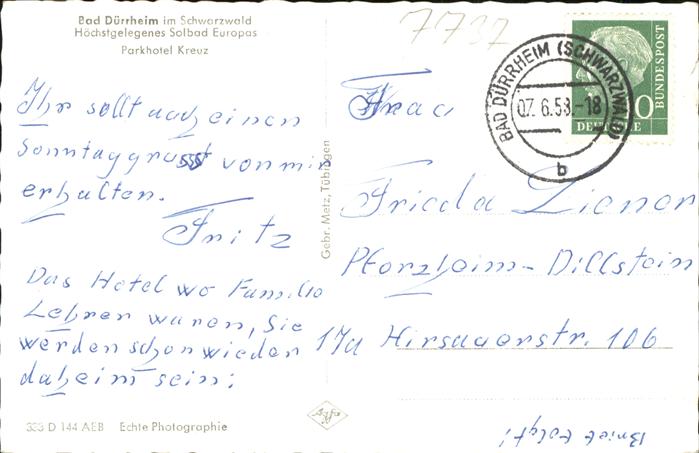 Bad Dürrheim im Schwarzwald
Höchstgelegenes Solbad Europas
Parkhotel Kreuz
Ihr sollt auch einen
Sonntaggruss von mir
erhalten.
Fritz
Das Hotel wo Familie
Lehrer waren, Sie
werden schon wieder
daheim sein;
333 D 144 AEB Echte Photographie
Gebr. Metz, Tübingen
Agfa
7737
BAD DÜRRHEIM (SCHWARZWALD)
07.6.58.-18
b
DEUTSCHE
BUNDESPOST
10
Frau
Frieda Liener
Pforzheim-Dillstein
17a Hirsauerstr. 106
Brief folgt!